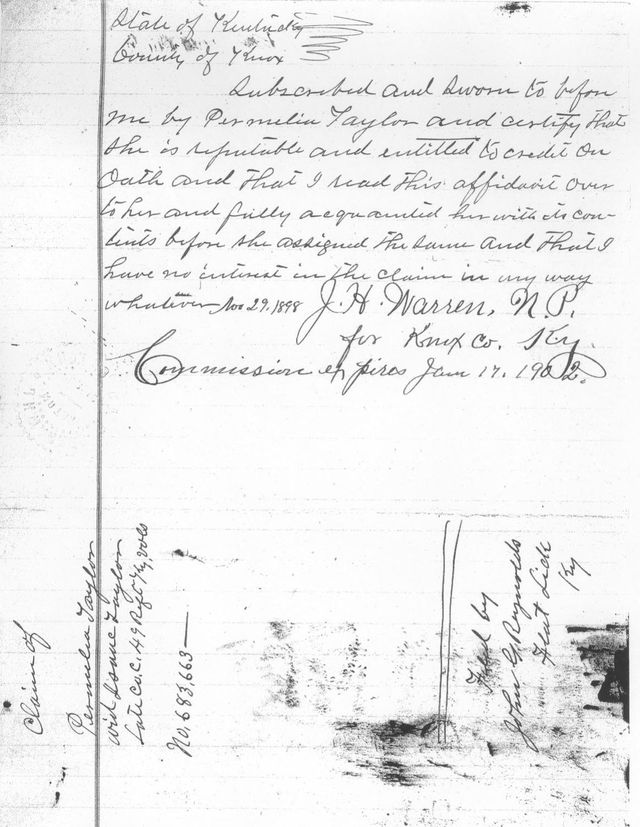 State of Kentucky
County of Knox
Subscribed and Sworn to before
me by Permelia Taylor and certify that
She is reputable and entitled to credit on
Oath and that I read this affidavit over
to her and fully acquanted her with its con-
tents before she assigned the same and that I
have no interest in the claim in any way
whatever Nov 29. 1898 J. H. Warren, N. P.
for Knox Co. Ky.
Commission expires Jan 17. 1902.
Claim of
Permelia Taylor
wid Isaac Taylor
late Co. C. 49 Regt Ky vols
No. 683,663
Filed by
John G Reynolds
Flat Lick
Ky